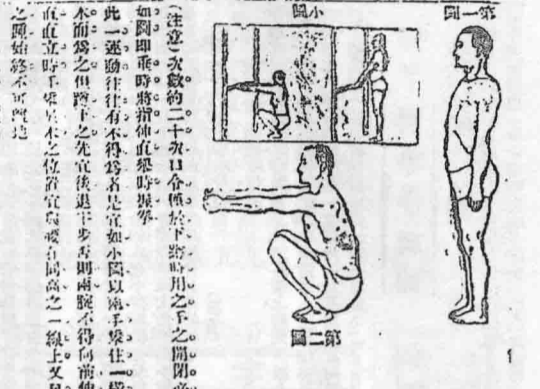 第一圖
小圖
第二圖
(注意)次數約二十次口令 於下蹲時用之手之開閉亦
如圖即垂時將指伸直舉時握拳
此一運動往往有不得爲者是宜如小圖以兩手 住一橫
木而爲之但蹲下之先宜後退半步否則兩腕不得向前伸
直直立時手 木之位置宜與腰有同高之一線上又
之踵始終不可